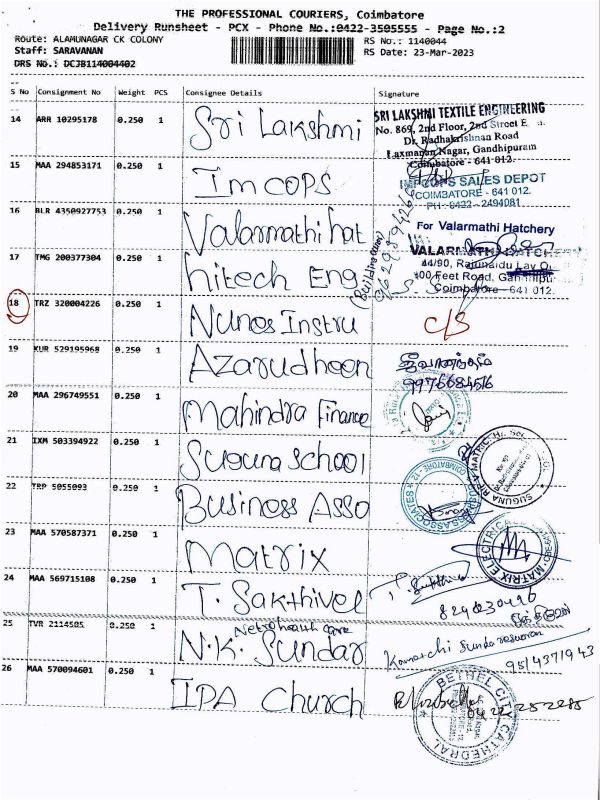 THE PROFESSIONAL COURIERS, Coimbatore
Delivery Runsheet - PCX - Phone No.:0422-3505555 - Page No.:2
Route: ALAMUNAGAR CK COLONY
RS No.: 1140044
Staff: SARAVANAN
RS Date: 23-Mar-2023
DRS No.: DCJB114004402
S No Consignment No Weight PCS Consignee Details Signature
14 ARR 10295178 0.250 1 Sri Lakshmi
SRI LAKSHMI TEXTILE ENGINEERING
No. 869, 2nd Floor, 2nd Street
Dr. Radhakrishnan Road
Laxmanan Nagar, Gandhipuram
Coimbatore - 641 012.
15 MAA 294853171 0.250 1 Imcops
IMCOPS SALES DEPOT
COIMBATORE - 641 012.
PH : 0422 - 2494081
16 BLR 4350927753 0.250 1 Valarmathi hat
For Valarmathi Hatchery
VALARMATHI HATCHERY
44/90, Rajunaidu Lay O
100 Feet Road, Gandhipu
Coimbatore - 641 012.
17 TMG 200377304 0.250 1 hitech Eng
18 TRZ 320004226 0.250 1 Nunes Instru
C/S
19 KUR 529195968 0.250 1 Azarudheen
ஜீவானந்தம்
20 MAA 296749551 0.250 1 Mahindra Finance
21 IXM 503394922 0.250 1 Suguna School
SUGUNA RIP.V MATRIC. Hr. Sec.
22 TRP 5055093 0.250 1 Business Asso
BUSINESS ASSOCIATES COIMBATORE - 12
23 MAA 570587371 0.250 1 Matrix
MATRIX ELECTRICA
24 MAA 569715108 0.250 1 T. Sakthivel
25 TVR 2114505 0.250 1 N.K. Sundar
Netrohealth care
Kamatchi Sundaresuwaran
9514371943
26 MAA 570094601 0.250 1 IPA Church
BETHEL CITY CATHEDRAL